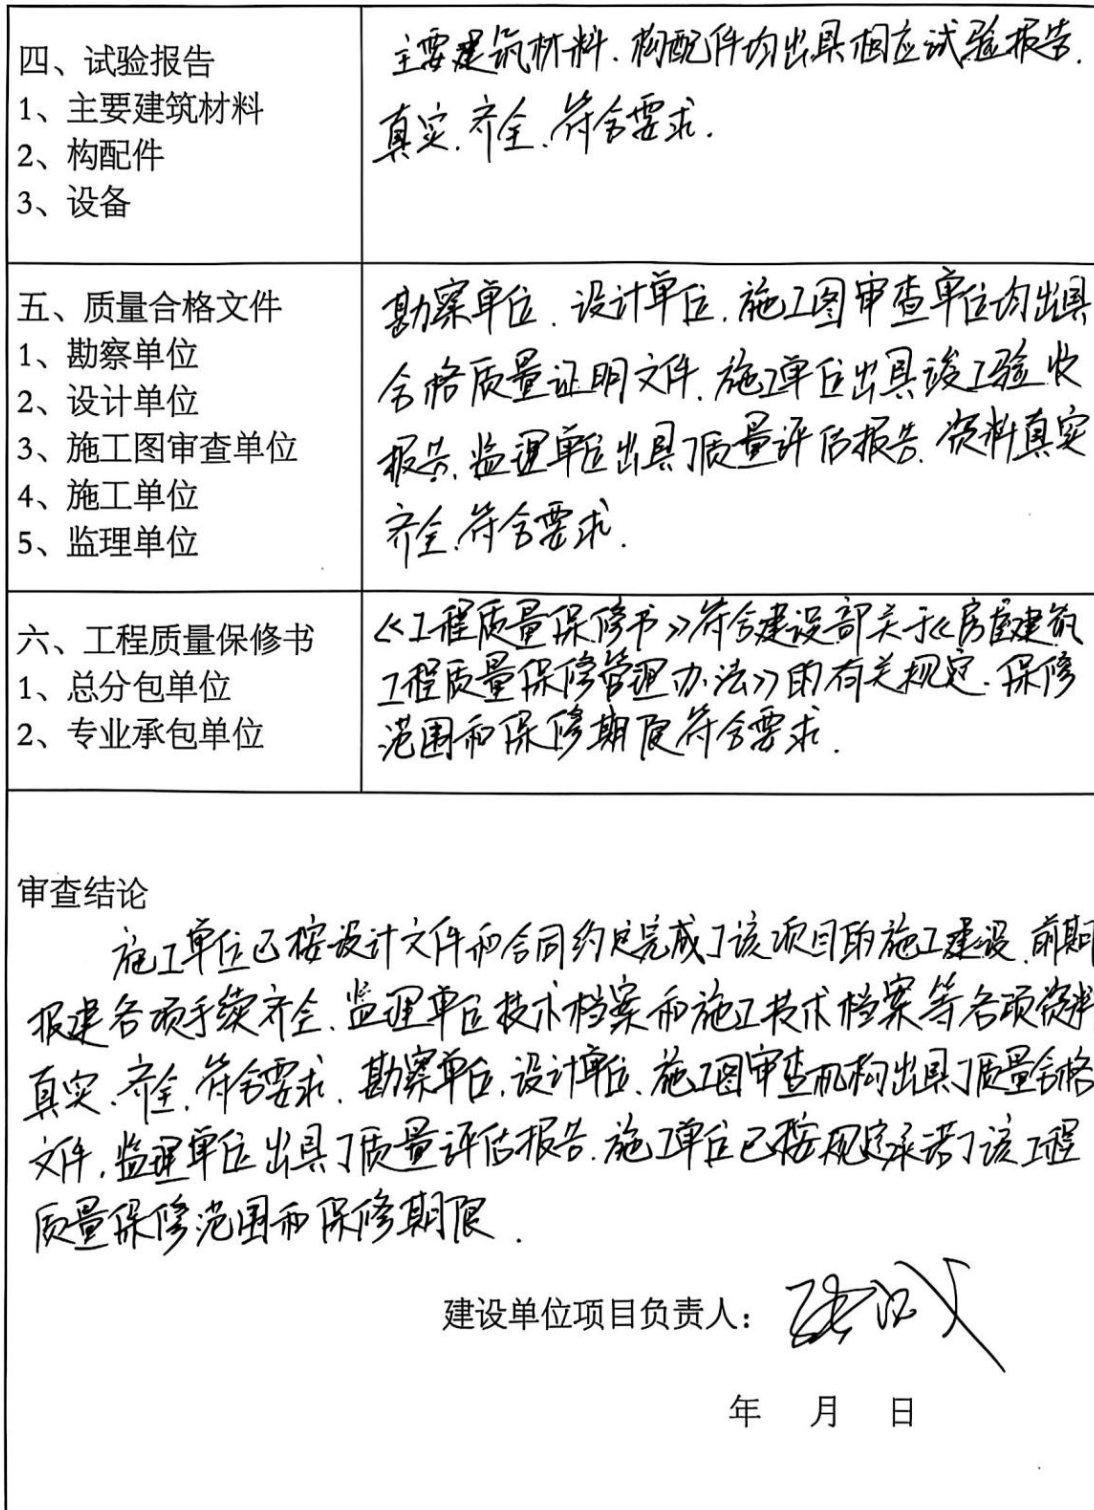 四、试验报告
1、主要建筑材料
2、构配件
3、设备
主要建筑材料、构配件均出具相应试验报告.
真实.齐全.符合要求.
五、质量合格文件
1、勘察单位
2、设计单位
3、施工图审查单位
4、施工单位
5、监理单位
勘察单位、设计单位.施工图审查单位均出具
合格质量证明文件.施工单位出具竣工验收
报告.监理单位出具了质量评估报告.资料真实
齐全.符合要求.
六、工程质量保修书
1、总分包单位
2、专业承包单位
《工程质量保修书》符合建设部关于《房屋建筑
工程质量保修管理办法》的有关规定.保修
范围和保修期限符合要求.
审查结论
施工单位已按设计文件和合同约定完成了该项目的施工建设.前期
报建各项手续齐全.监理单位技术档案和施工技术档案等各项资料
真实.齐全.符合要求.勘察单位.设计单位.施工图审查机构出具了质量合格
文件.监理单位出具了质量评估报告.施工单位已按规定承诺了该工程
质量保修范围和保修期限.
建设单位项目负责人:
年 月 日